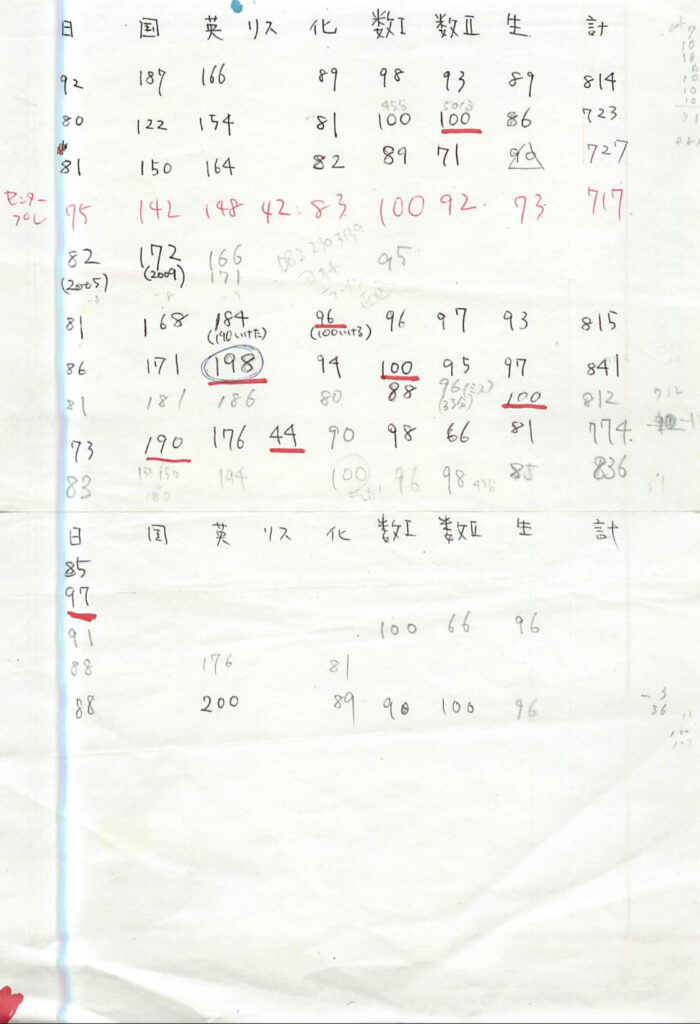 日 国 英 リス 化 数I 数II 生 計
92 187 166 89 98 93 89 814
80 122 154 81 100 100 86 723
81 150 164 82 89 71 90 727
センター
プレ 75 142 148 42 83 100 92 73 717
82 172 166 95
(2005) (2009) 171
81 168 184 96 96 97 93 815
(190いけた) (100いける)
86 171 198 94 100 95 97 841
81 181 186 80 88 96(ミス) 100 812
(33分)
73 190 176 44 90 98 66 81 774
83 138/150 194 100 96 98 436 85 836
180
日 国 英 リス 化 数I 数II 生 計
85
97
91 100 66 96
88 176 81
88 200 89 90 100 96
-3
36